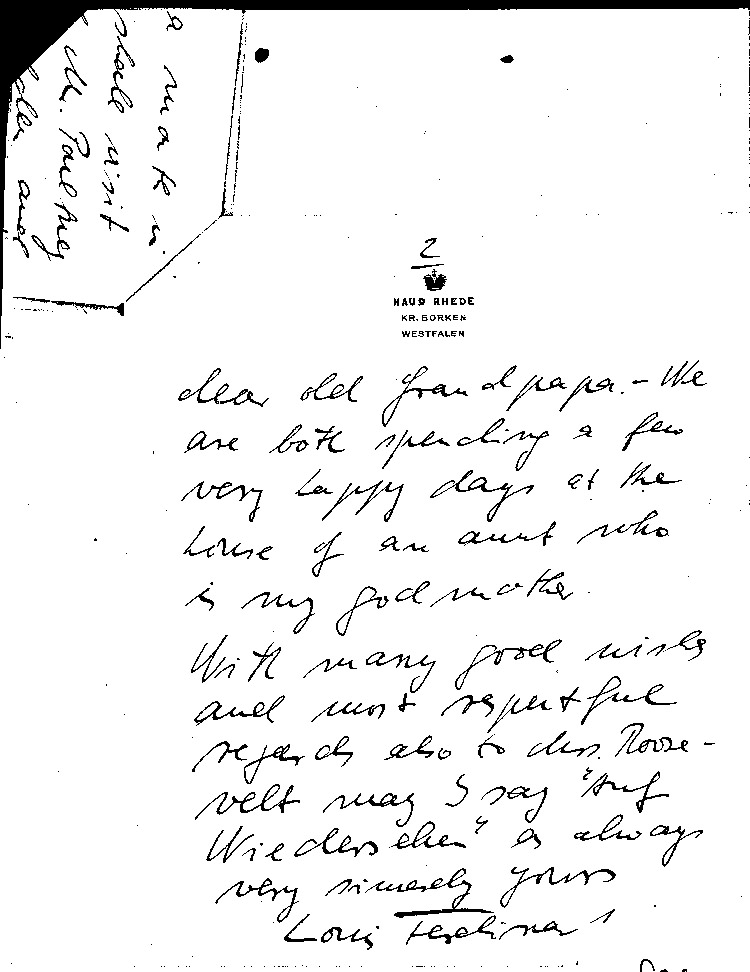 a mak
shall visit
Mr. Paul
and
2
HAUS RHEDE
KR. BORKEN
WESTFALEN
dear old Grandpapa. - We
are both spending a few
very happy days at the
house of an aunt who
is my godmother.
With many good wishes
and most respectful
regards also to Mrs. Roose-
velt may I say "Auf
Wiedersehen" as always
very sincerely yours
Louis Ferdinand